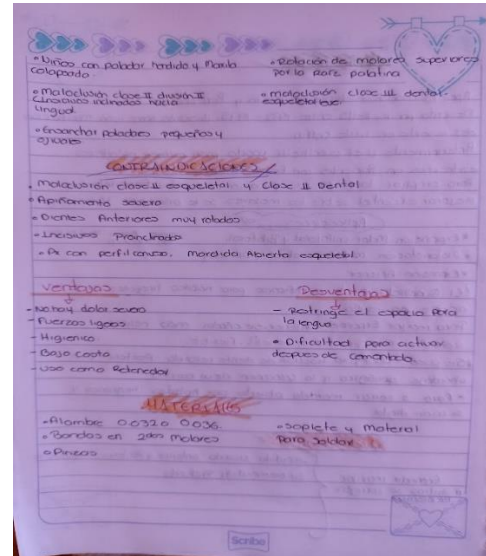 • Niños con paladar hendido y Maxila
colapsado.
• Maloclusión clase II división II
Incisivos inclinados hacia
lingual
• Ensanchar paladares pequeños y
ojivales
• Rotación de molares superiores
por la raiz palatina
• maloclusión clase III dental-
esqueletal leve
CONTRAINDICACIONES
• Maloclusión clase II esqueletal y clase II Dental
• Apiñamiento severo
• Dientes Anteriores muy rotados
• Incisivos Proinclinados
• Px con perfil convexo, Mordida Abierta esqueletal.
Ventajas
- No hay dolor severo
- Fuerzas ligeras
- Higienico
- Bajo costo
- Uso como Retenedor
Desventajas
- Restringe el espacio para
la lengua
• Dificultad para activar
despues de cementado.
MATERIALES
• Alambre 0.032 o 0.036
• Bandas en 2dos molares
• Pinzas
• Soplete y material
para soldar
Scribe